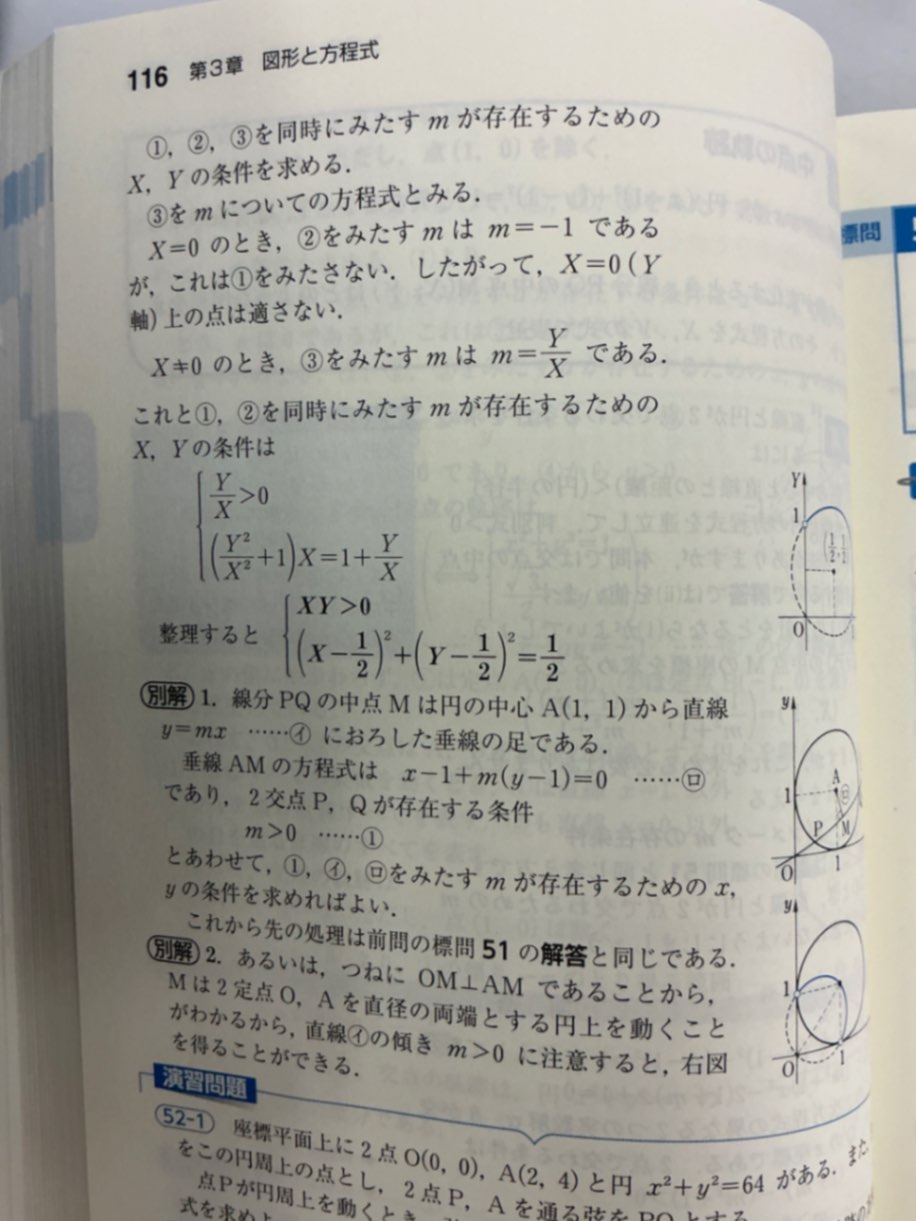 116 第3章 図形と方程式
①，②，③を同時にみたす m が存在するための
X，Y の条件を求める．
③を m についての方程式とみる．
X=0 のとき，②をみたす m は m=−1 である
が，これは①をみたさない．したがって，X=0 (Y
軸) 上の点は適さない．
X≠0 のとき，③をみたす m は m=Y/X である．
これと①，②を同時にみたす m が存在するための
X，Y の条件は
Y/X>0
(Y²/X²+1)X=1+Y/X
整理すると
XY>0
(X−1/2)²+(Y−1/2)²=1/2
Y
1
(1/2, 1/2)
O
1
別解 1．線分 PQ の中点 M は円の中心 A(1, 1) から直線
y=mx ……㋑ におろした垂線の足である．
垂線 AM の方程式は x−1+m(y−1)=0 ……㋺
であり，2交点 P，Q が存在する条件
m>0 ……①
とあわせて，①，㋑，㋺をみたす m が存在するための x，
y の条件を求めればよい．
これから先の処理は前問の標問 51 の解答と同じである．
y
A
㋺
1
P
M
O
1
別解 2．あるいは，つねに OM⊥AM であることから，
M は 2 定点 O，A を直径の両端とする円上を動くこと
がわかるから，直線㋑の傾き m>0 に注意すると，右図
を得ることができる．
y
1
O
1
演習問題
52-1 座標平面上に 2 点 O(0, 0)，A(2, 4) と円 x²+y²=64 がある．また，
をこの円周上の点とし，2 点 P，A を通る弦を PQ とする
点Pが円周上を動くとき，
式を求め
標問